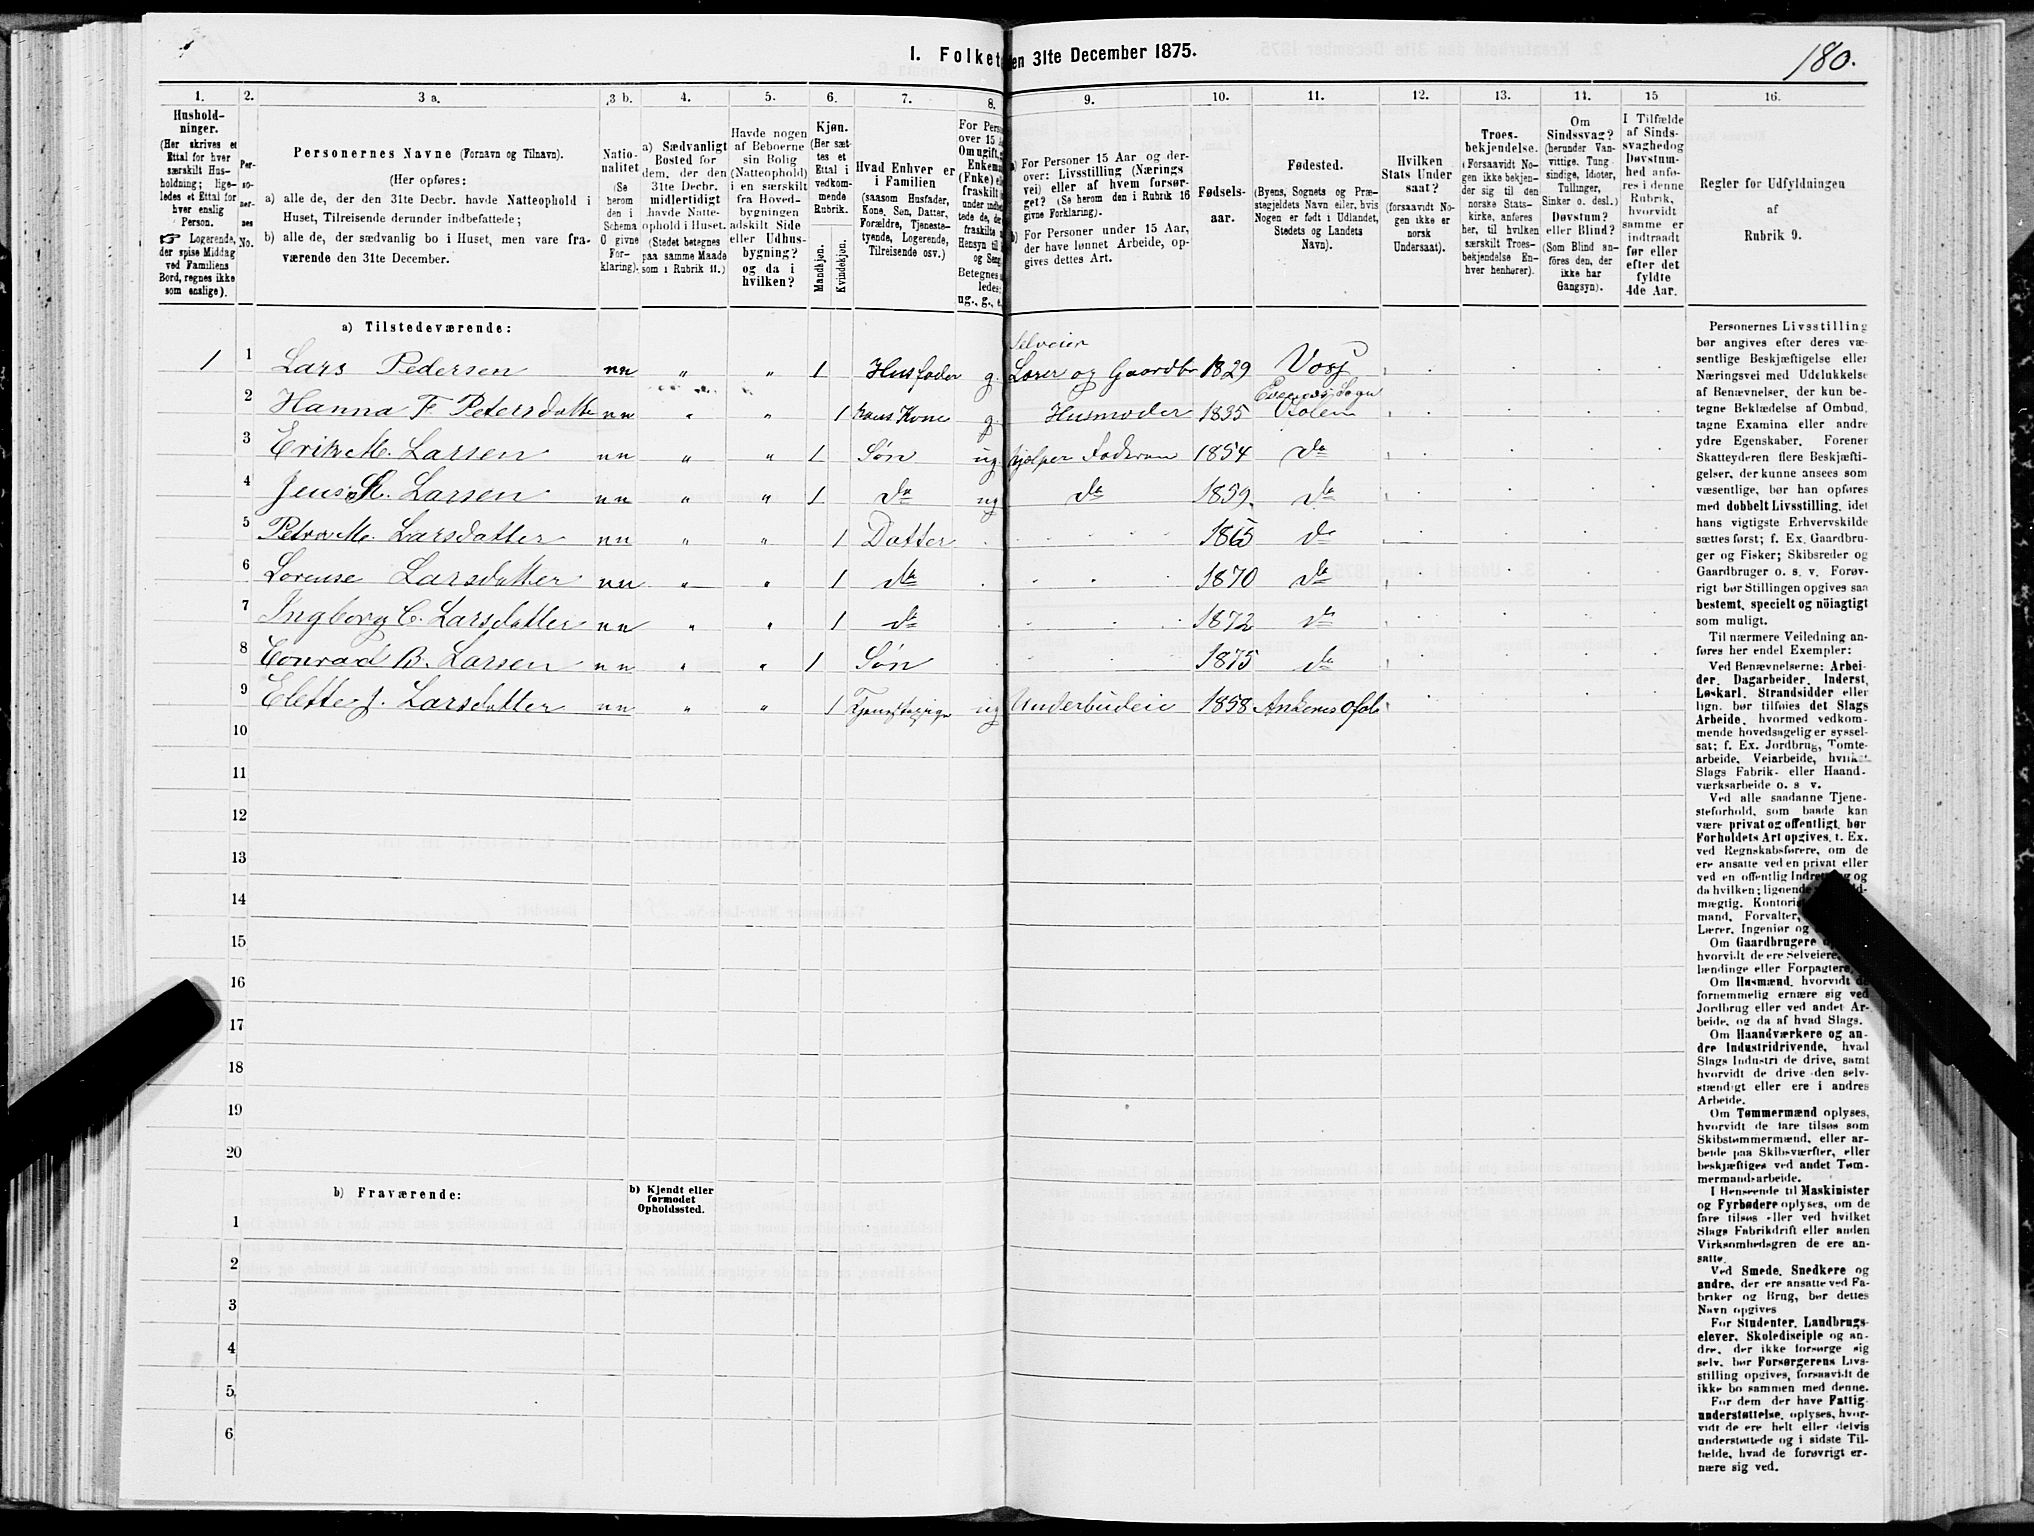 I. Folket en 31te December 1875.
180.
1. 2. 3 a. 3 b. 4. 5. 6. 7. 8. 9. 10. 11. 12. 13. 14. 15 16.
Hushold-
ninger.
(Her skrives et
Ettal for hver
særskilt Hus-
holdning; lige-
ledes et Ettal for
hver enslig
Person.
☞ Logerende,
der spise Middag
ved Familiens
Bord, regnes ikke
som enslige).
Per-
so-
ner-
nes
No.
Personernes Navne (Fornavn og Tilnavn).
(Her opføres:
a) alle de, der den 31te Decbr. havde Natteophold i
Huset, Tilreisende derunder indbefattede;
b) alle de, der sædvanlig bo i Huset, men vare fra-
værende den 31te December.
Natio-
nalitet
(Se
herom
den i
Schema
O givne
For-
klaring).
a) Sædvanligt
Bosted for
dem, der den
31te Decbr.
midlertidigt
havde Natte-
ophold i Huset.
(Stedet betegnes
paa samme Maade
som i Rubrik 11.)
Havde nogen
af Beboerne
sin Bolig
(Natteophold)
i en særskilt
fra Hoved-
bygningen
adskilt Side
eller Udhus-
bygning?
og da i
hvilken?
Kjøn.
(Her sæt-
tes et
Ettal i
vedkom-
mende
Rubrik.
Mandkjøn.
Kvindekjøn.
Hvad Enhver er
i Familien
(saasom Husfader,
Kone, Søn, Datter,
Forældre, Tjeneste-
tyende, Logerende,
Tilreisende osv.)
For Pers
over 15 A
Om ugift,
Enkem
(Enke) e
fraskilt
under indb
tede de, d
fraskilte
Hensyn til
og Seng
Betegnes
ledes:
ug., g., e.
a) For Personer 15 Aar og der-
over: Livsstilling (Nærings
vei) eller af hvem forsør-
get? (Se herom den i Rubrik 16
givne Forklaring).
b) For Personer under 15 Aar,
der have lønnet Arbeide, op-
gives dettes Art.
Fødsels-
aar.
Fødested.
(Byens, Sognets og Præ-
stegjeldets Navn eller, hvis
Nogen er født i Udlandet,
Stedets og Landets
Navn).
Hvilken
Stats Under
saat?
(forsaavidt No-
gen ikke er
norsk
Undersaat).
Troes-
bekjendelse.
(Forsaavidt No-
gen ikke bekjen-
der sig til den
norske Stats-
kirke, anføres
her, til hvilken
særskilt Troes-
bekjendelse En-
hver henhører).
Om
Sindssvag?
(herunder Van-
vittige, Tung
sindige, Idioter,
Tullinger,
Sinker o. desl.)
Døvstum?
eller Blind?
(Som Blind an-
föres den, der
ikke har
Gangsyn).
I Tilfælde
af Sinds-
svaghed og
Døvstum-
hed anfø-
res i denne
Rubrik,
hvorvidt
samme er
indtraadt
før eller
efter det
fyldte
4de Aar.
Regler for Udfyldningen
af
Rubrik 9.
a) Tilstedeværende:
Selveier
1 1 Lars Pedersen nn " " 1 Husfader g. Loser og Gaardbr 1829 Vosj
2 Hanna F Petersdatter nn " " 1 hans Kone g. Husmoder 1835 Evenes Sogn
3 Erik M. Larsen nn " " 1 Søn ug. hjelper Faderen 1854 do
4 Jens K. Larsen nn " " 1 do ug do 1859. do
5 Petra M. Larsdatter nn " " 1 Datter 1865 do
6 Lorense Larsdatter nn " " 1 do 1870 do
7 Ingborg C. Larsdatter nn " " 1 do 1872 do
8 Conrad B. Larsen nn " " 1 Søn 1875 do
9 Elette J. Larsdatter nn " " 1 Tjenestepige ug Underbudeie 1858 Ankenes Ofot
10
11
12
13
14
15
16
17
18
19
20
b) Fraværende:
b) Kjendt eller
formodet
Opholdssted.
1
2
3
4
5
6
Personernes Livsstilling
bør angives efter deres væ-
sentlige Beskjæftigelse eller
Næringsvei med Udelukkelse
af Benævnelser, der kun be-
tegne Beklædelse af Ombud,
tagne Examina eller andre
ydre Egenskaber. Forener
Skatteyderen flere Beskjæfti-
gelser, der kunne ansees som
væsentlige, bør han opføres
med dobbelt Livsstilling, idet
hans vigtigste Erhvervskilde
sættes først; f. Ex. Gaardbru-
ger og Fisker; Skibsreder og
Gaardbruger o. s. v. Forøv-
rigt bør Stillingen opgives saa
bestemt, specielt og nöiagtigt
som muligt.
Til nærmere Veiledning an-
føres her endel Exempler:
Ved Benævnelserne: Arbei-
der, Dagarbeider, Inderst,
Løskarl, Strandsidder eller
lign. bør tilføies det Slags
Arbeide, hvormed vedkom-
mende hovedsagelig er syssel-
sat; f. Ex. Jordbrug, Tomte-
arbeide, Veiarbeide, hvilket
Slags Fabrik- eller Haand-
værksarbeide o. s v.
Ved alle saadanne Tjene-
steforhold, som baade kan
være privat og offentligt, bør
Forholdets Art opgives, t. Ex.
ved Regnskabsførere, om de
ere ansatte ved en privat eller
ved en offentlig Indretning og
da hvilken; lignende
mægtig, Kontorist
mand, Forvalter,
Lærer, Ingeniør og
Om Gaardbrugere
hvorvidt de ere Selveiere,
lændinge eller Forpagtere.
Om Husmænd, hvorvidt de
fornemmelig ernære sig ved
Jordbrug eller ved andet Ar-
beide, og da af hvad Slags.
Om Haandværkere og an-
dre Industridrivende, hvad
Slags Industri de drive, samt
hvorvidt de drive den selv-
stændigt eller ere i andres
Arbeide.
Om Tømmermænd oplyses,
hvorvidt de fare tilsøs som
Skibstømmermænd, eller ar-
beide paa Skibsværfter, eller
beskjæftiges ved andet Tøm-
mermandsarbeide.
I Henseende til Maskinister
og Fyrbødere oplyses, om de
fare tilsøs eller ved hvilket
Slags Fabrikdrift eller anden
Virksomhedsgren de ere an-
satte.
Ved Smede, Snedkere og
andre, der ere ansatte ved Fa-
briker og Brug, bør dettes
Navn opgives
For Studenter, Landbrugs-
elever, Skoledisciple og an-
dre, der ikke forsørge sig
selv, bør Forsørgerens Livs-
stilling opgives, forsaavidt de
ikke bo sammen med denne.
For dem der have Fattig-
understøttelse, oplyses, hvor-
vidt de ere helt eller delvis
understøttede og i sidste Til-
fælde, hvad de forøvrigt er-
nære sig ved.